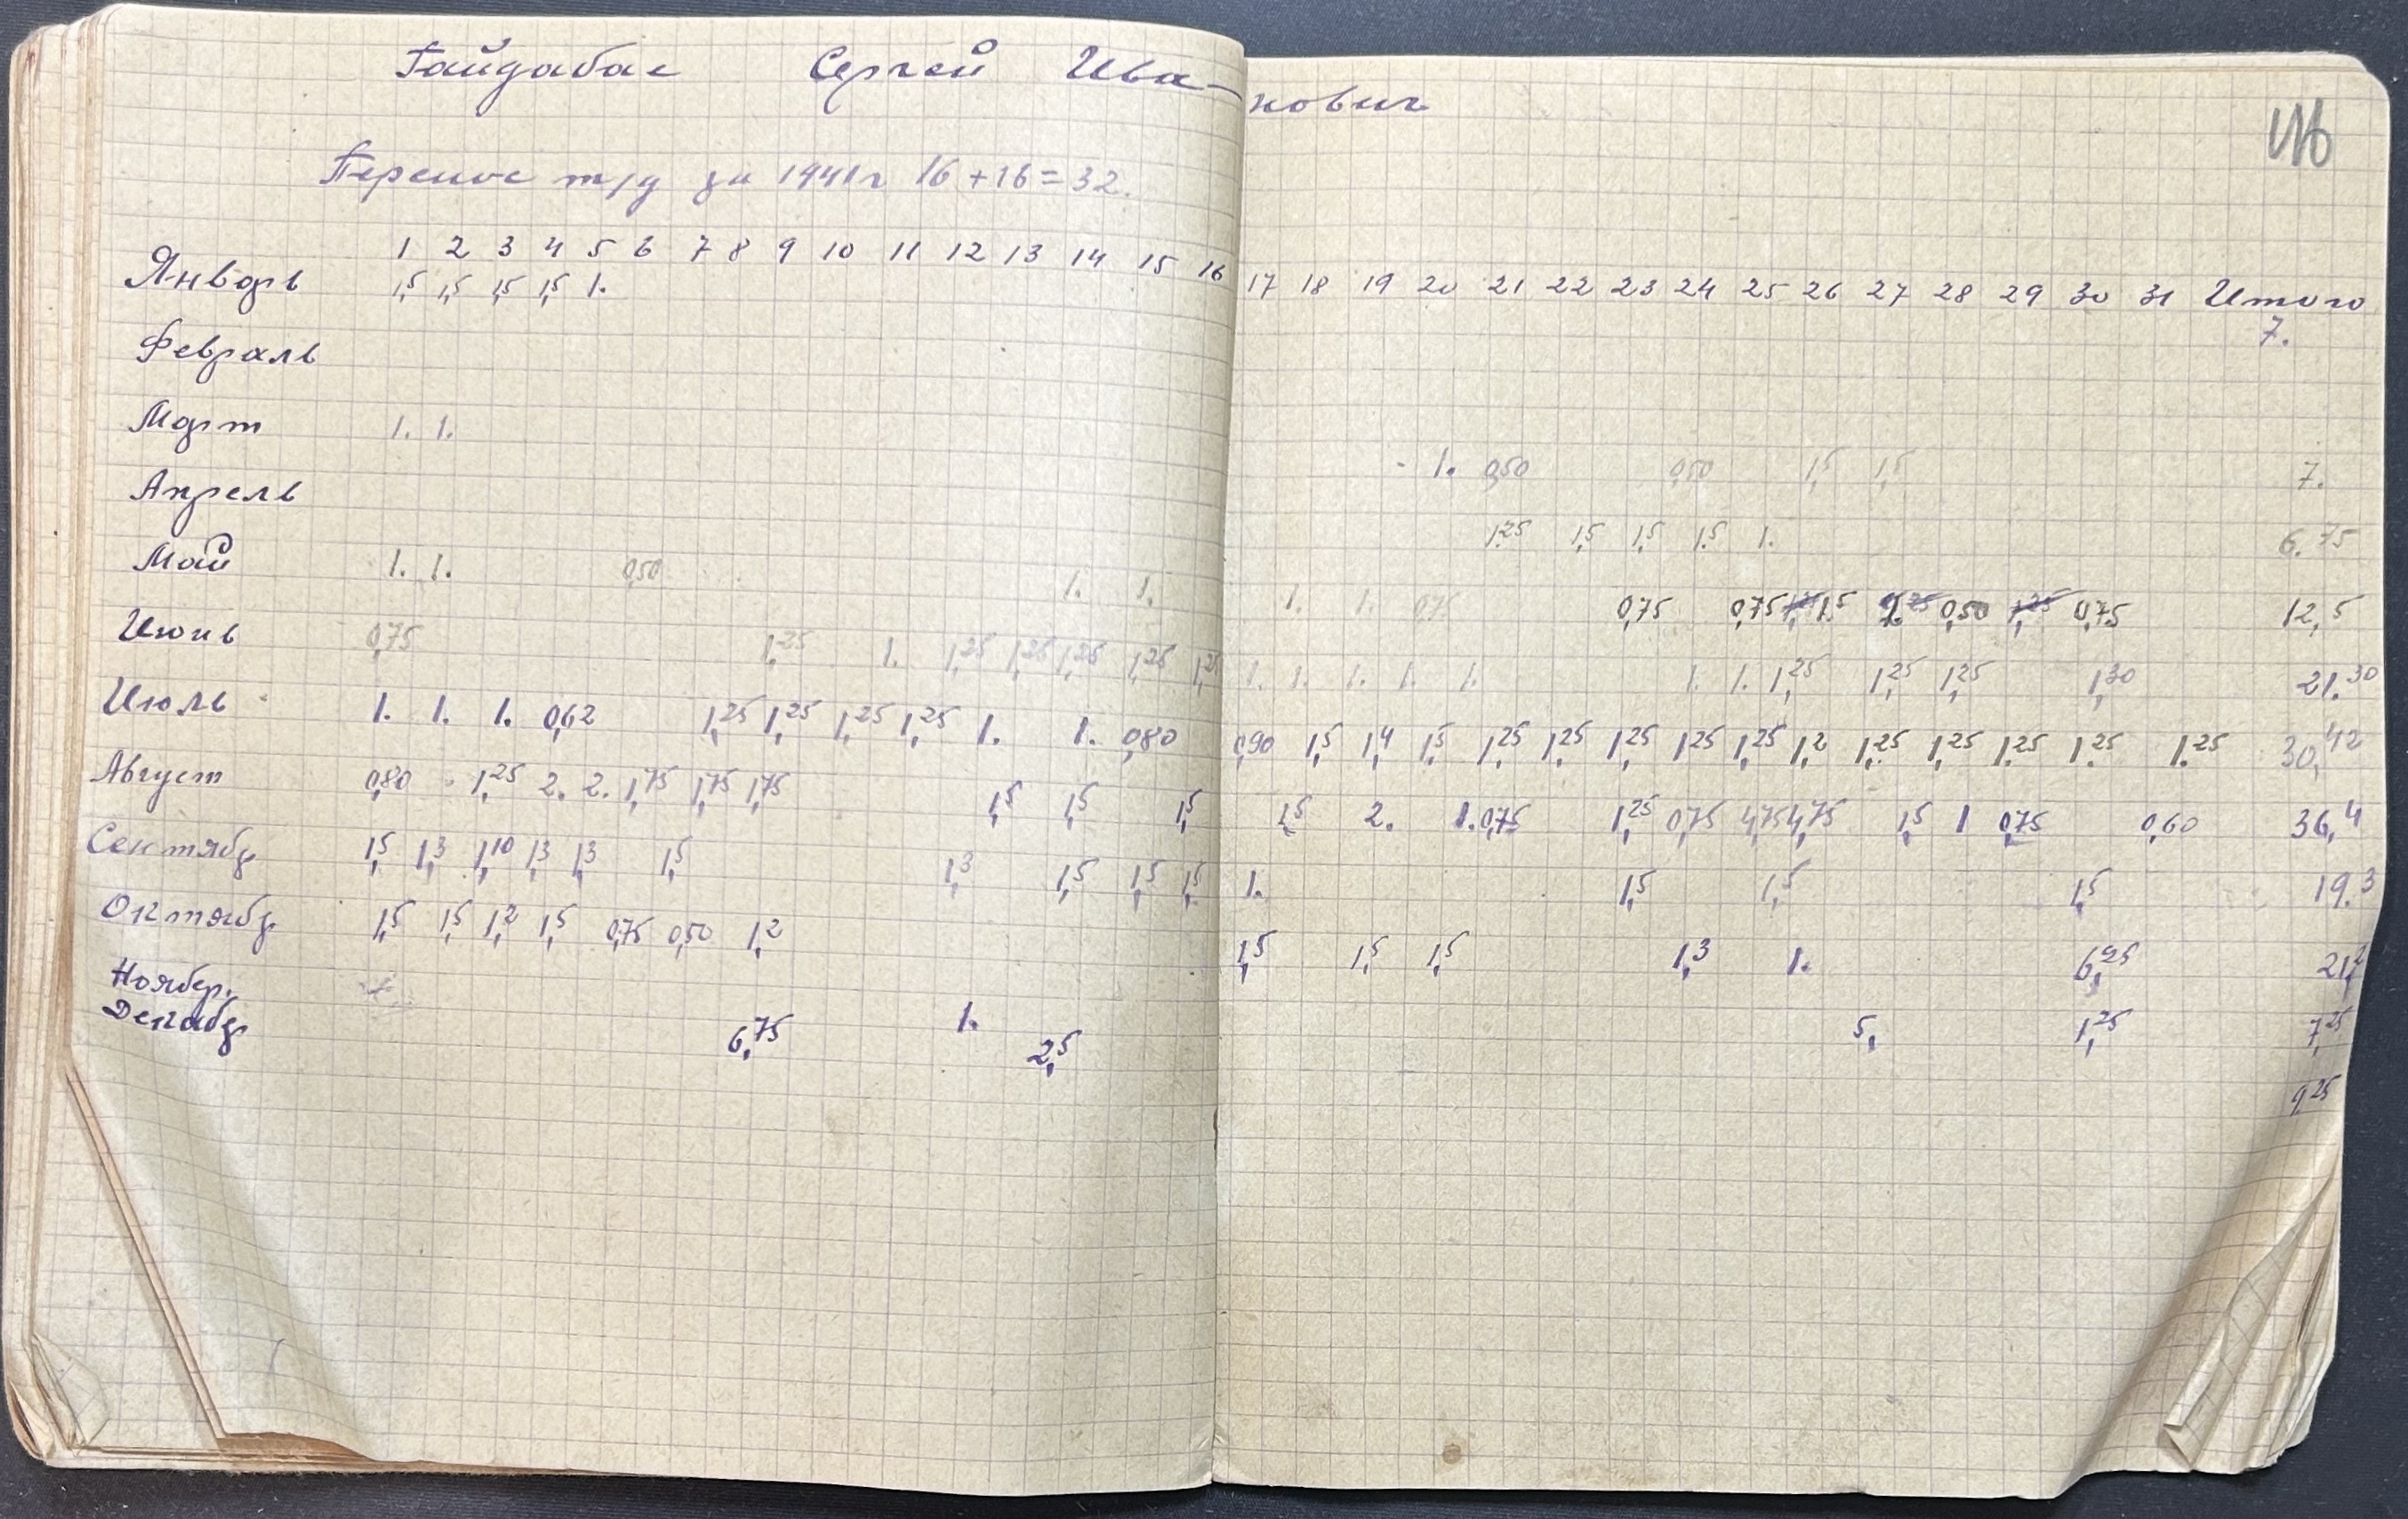 Гайдабас Сергей Иванович
Перенос т/д за 1941 г 16 + 16 = 32.
1 2 3 4 5 6 7 8 9 10 11 12 13 14 15 16 17 18 19 20 21 22 23 24 25 26 27 28 29 30 31 Итого
Январь 1,5 1,5 1,5 1,5 1. 7.
Февраль
Март 1. 1. 1. 0,50 0,50 1,5 1,5 7.
Апрель 1.25 1,5 1,5 1.5 1. 6.75
Май 1. 1. 0,50 1. 1. 1. 1. 0,75 0,75 0,75 1,5 0,50 0,75 12,5
Июнь 0,75 1,25 1. 1,25 1,25 1,25 1,25 1,25 1. 1. 1. 1. 1. 1. 1. 1,25 1,25 1,25 1,30 21.30
Июль 1. 1. 1. 0,62 1,25 1,25 1,25 1,25 1. 1. 0,80 0,90 1,5 1,4 1,5 1,25 1,25 1,25 1,25 1,25 1,2 1,25 1,25 1,25 1.25 1.25 30,42
Август 0,80 1,25 2. 2. 1,75 1,75 1,75 1,5 1,5 1,5 1,5 2. 1. 0,75 1,25 0,75 4,75 4,75 1,5 1 0,75 0,60 36,4
Сентябр 1,5 1,3 1,10 1,3 1,3 1,5 1,3 1,5 1,5 1,5 1. 1,5 1,5 1,5 19.3
Октябр 1,5 1,5 1,2 1,5 0,75 0,50 1,2 1,5 1,5 1,5 1,3 1. 6,25 21,2
Ноябер. 1. 5, 1,25 7,25
Декабр 6,75 2,5 9,25